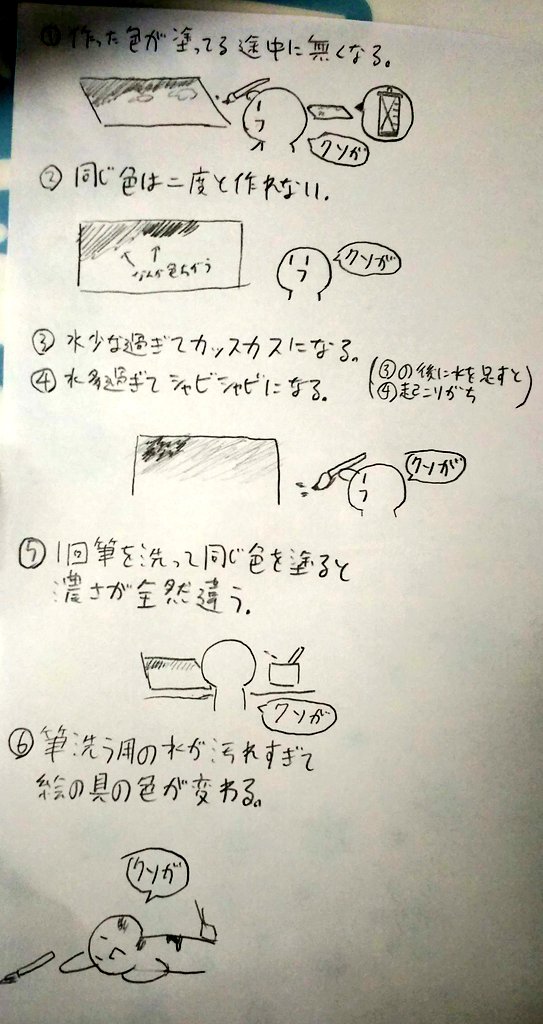 ① 作った色が塗ってる途中に無くなる。
クソが
② 同じ色は二度と作れない。
なんか色ちがう
クソが
③ 水少な過ぎてカッスカスになる。
④ 水多過ぎてシャビシャビになる。
(③の後に水を足すと
④起こりがち)
クソが
⑤ 1回筆を洗って同じ色を塗ると
濃さが全然違う。
クソが
⑥ 筆洗う用の水が汚れすぎて
絵の具の色が変わる。
クソが